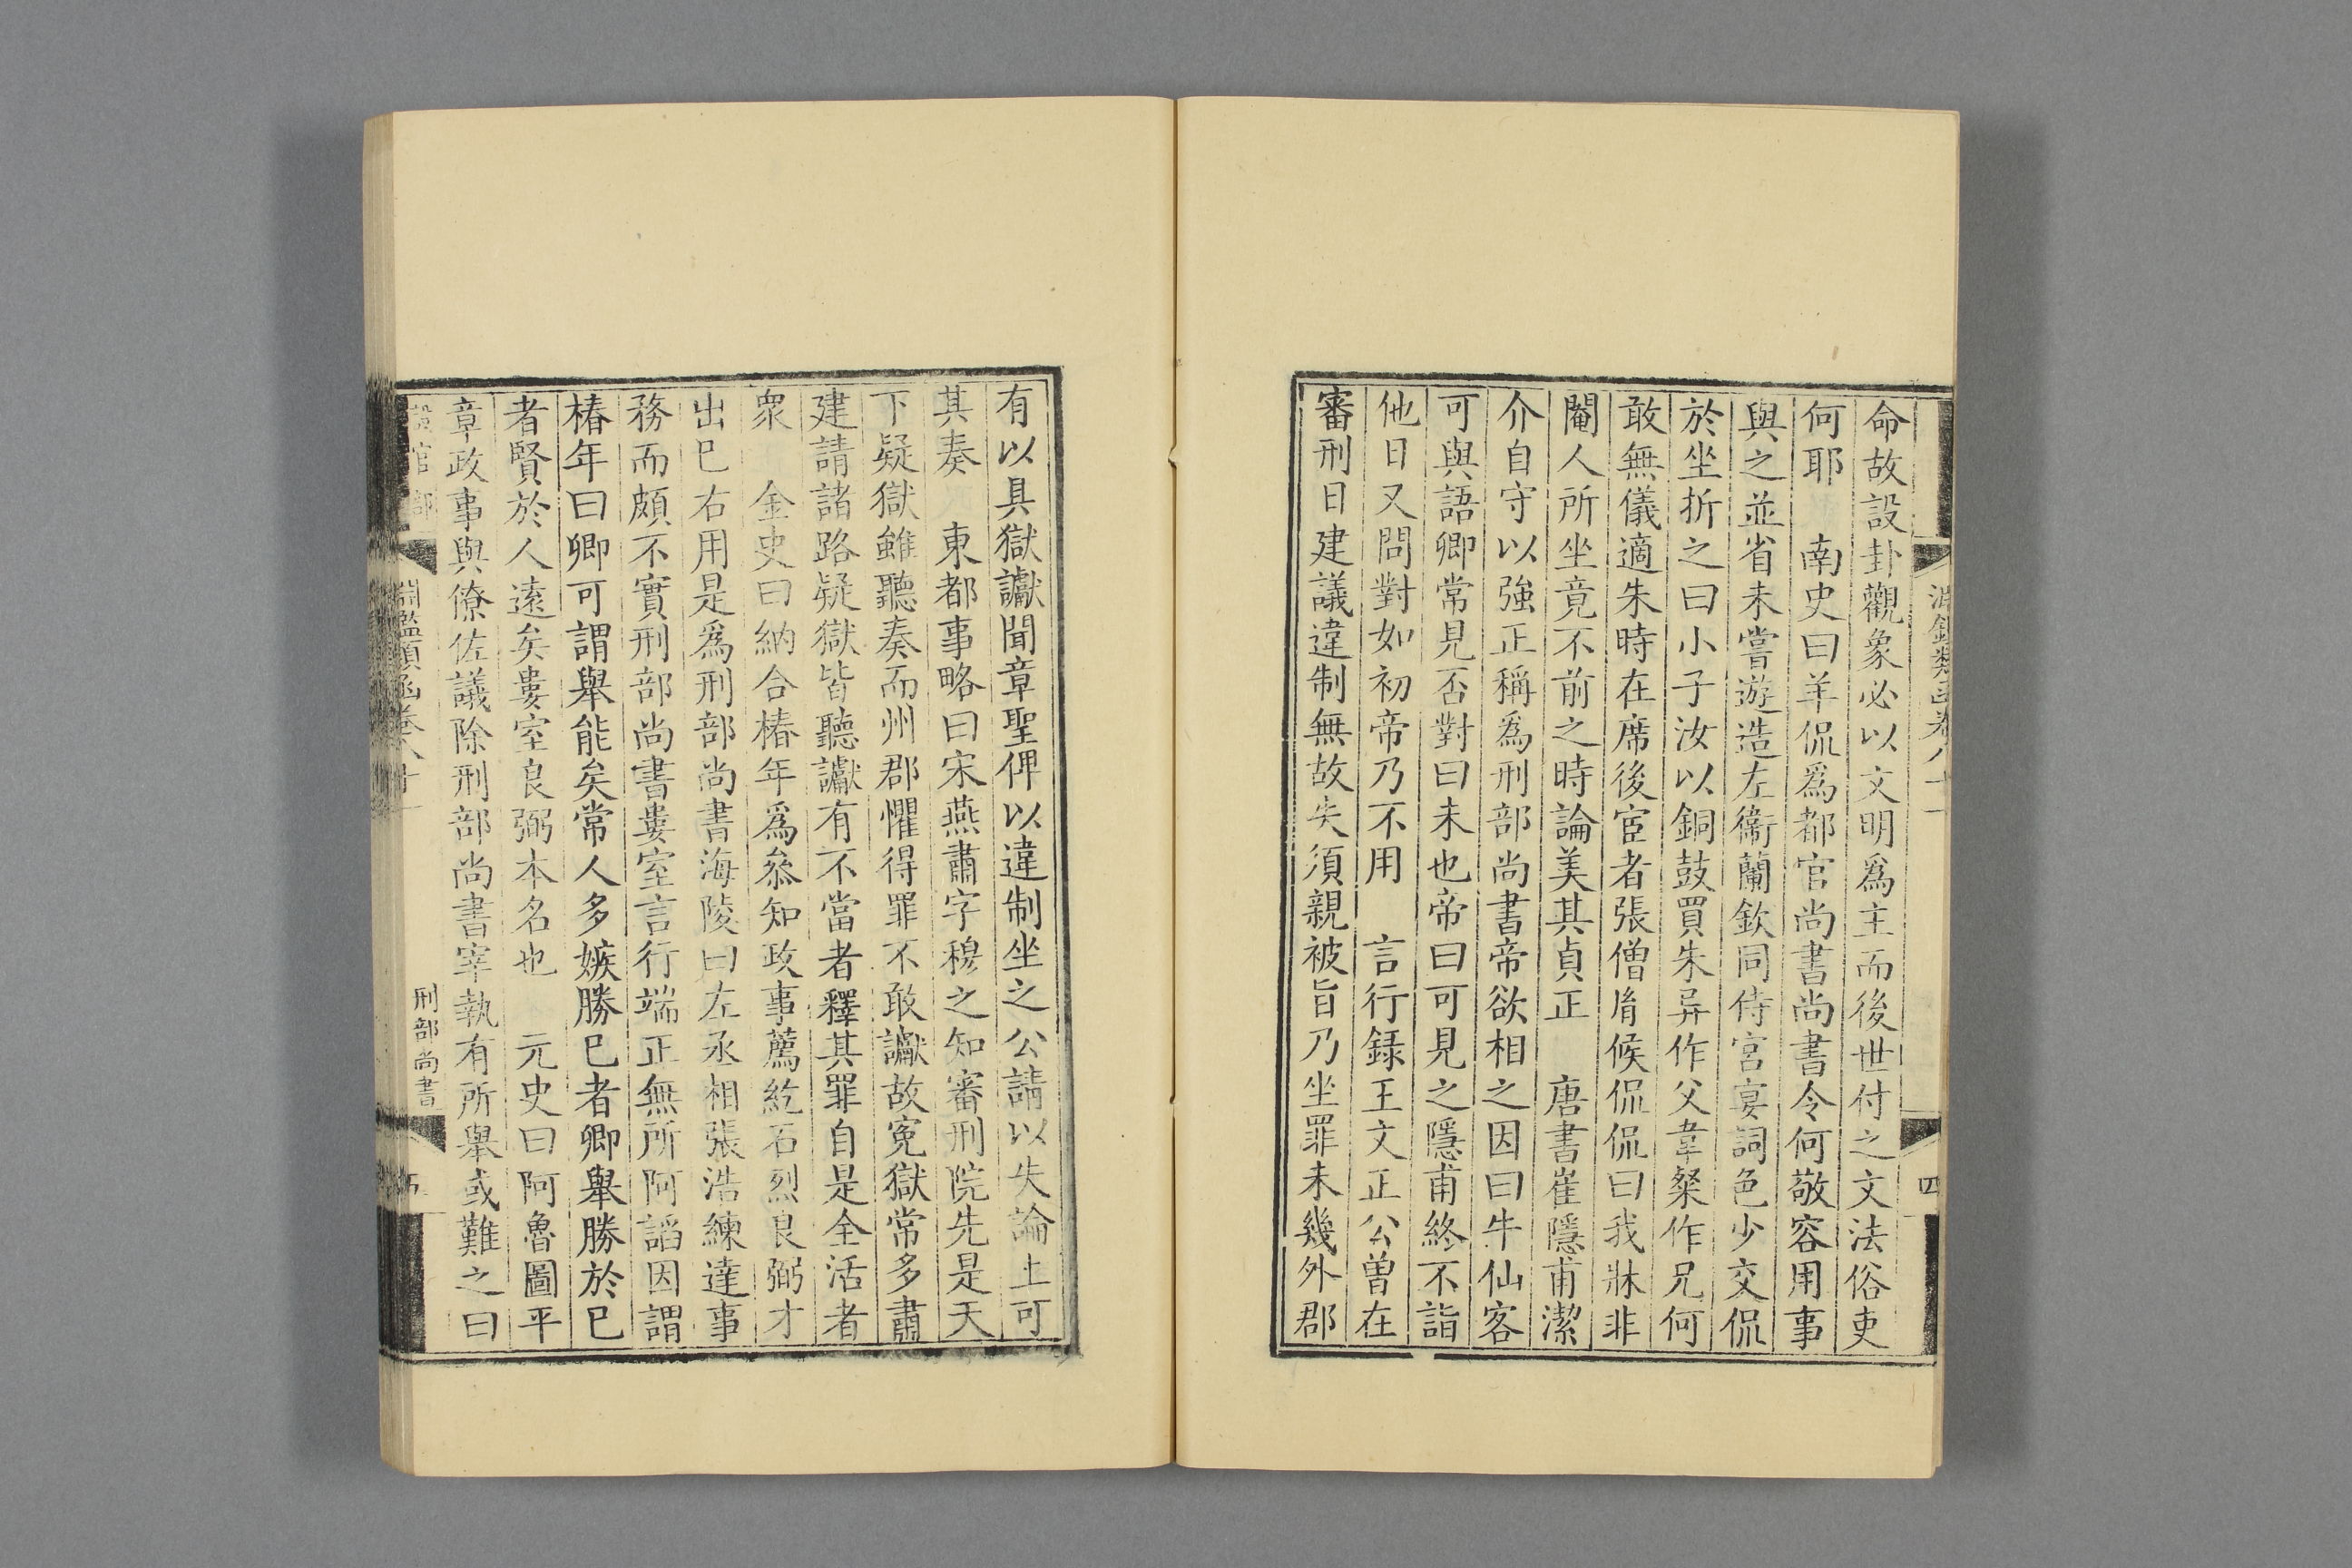 命故設卦觀象必以文明爲主而後世付之文法俗吏
何耶　南史曰羊侃爲都官尚書尚書令何敬容用事
與之並省未嘗遊造左衞蘭欽同侍宮宴詞色少交侃
於坐折之曰小子汝以銅鼓買朱异作父韋粲作兄何
敢無儀適朱時在席後宦者張僧胤候侃侃曰我牀非
閹人所坐竟不前之時論美其貞正　唐書崔隱甫潔
介自守以強正稱爲刑部尚書帝欲相之因曰牛仙客
可與語卿常見否對曰未也帝曰可見之隱甫終不詣
他日又問對如初帝乃不用　言行録王文正公曾在
審刑日建議違制無故失須親被旨乃坐罪未幾外郡
有以具獄讞聞章聖俾以違制坐之公請以失論上可
其奏　東都事略曰宋燕肅字穆之知審刑院先是天
下疑獄雖聽奏而州郡懼得罪不敢讞故冤獄常多肅
建請諸路疑獄皆聽讞有不當者釋其罪自是全活者
衆　金史曰納合椿年爲叅知政事薦紇石烈良弼才
出已右用是爲刑部尚書海陵曰左丞相張浩練達事
務而頗不實刑部尚書婁室言行端正無所阿謟因謂
椿年曰卿可謂舉能矣常人多嫉勝已者卿舉勝於已
者賢於人遠矣婁室良弼本名也　元史曰阿魯圖平
章政事與僚佐議除刑部尚書宰執有所舉或難之曰
淵鑑類函卷八十
刑部尚書
四